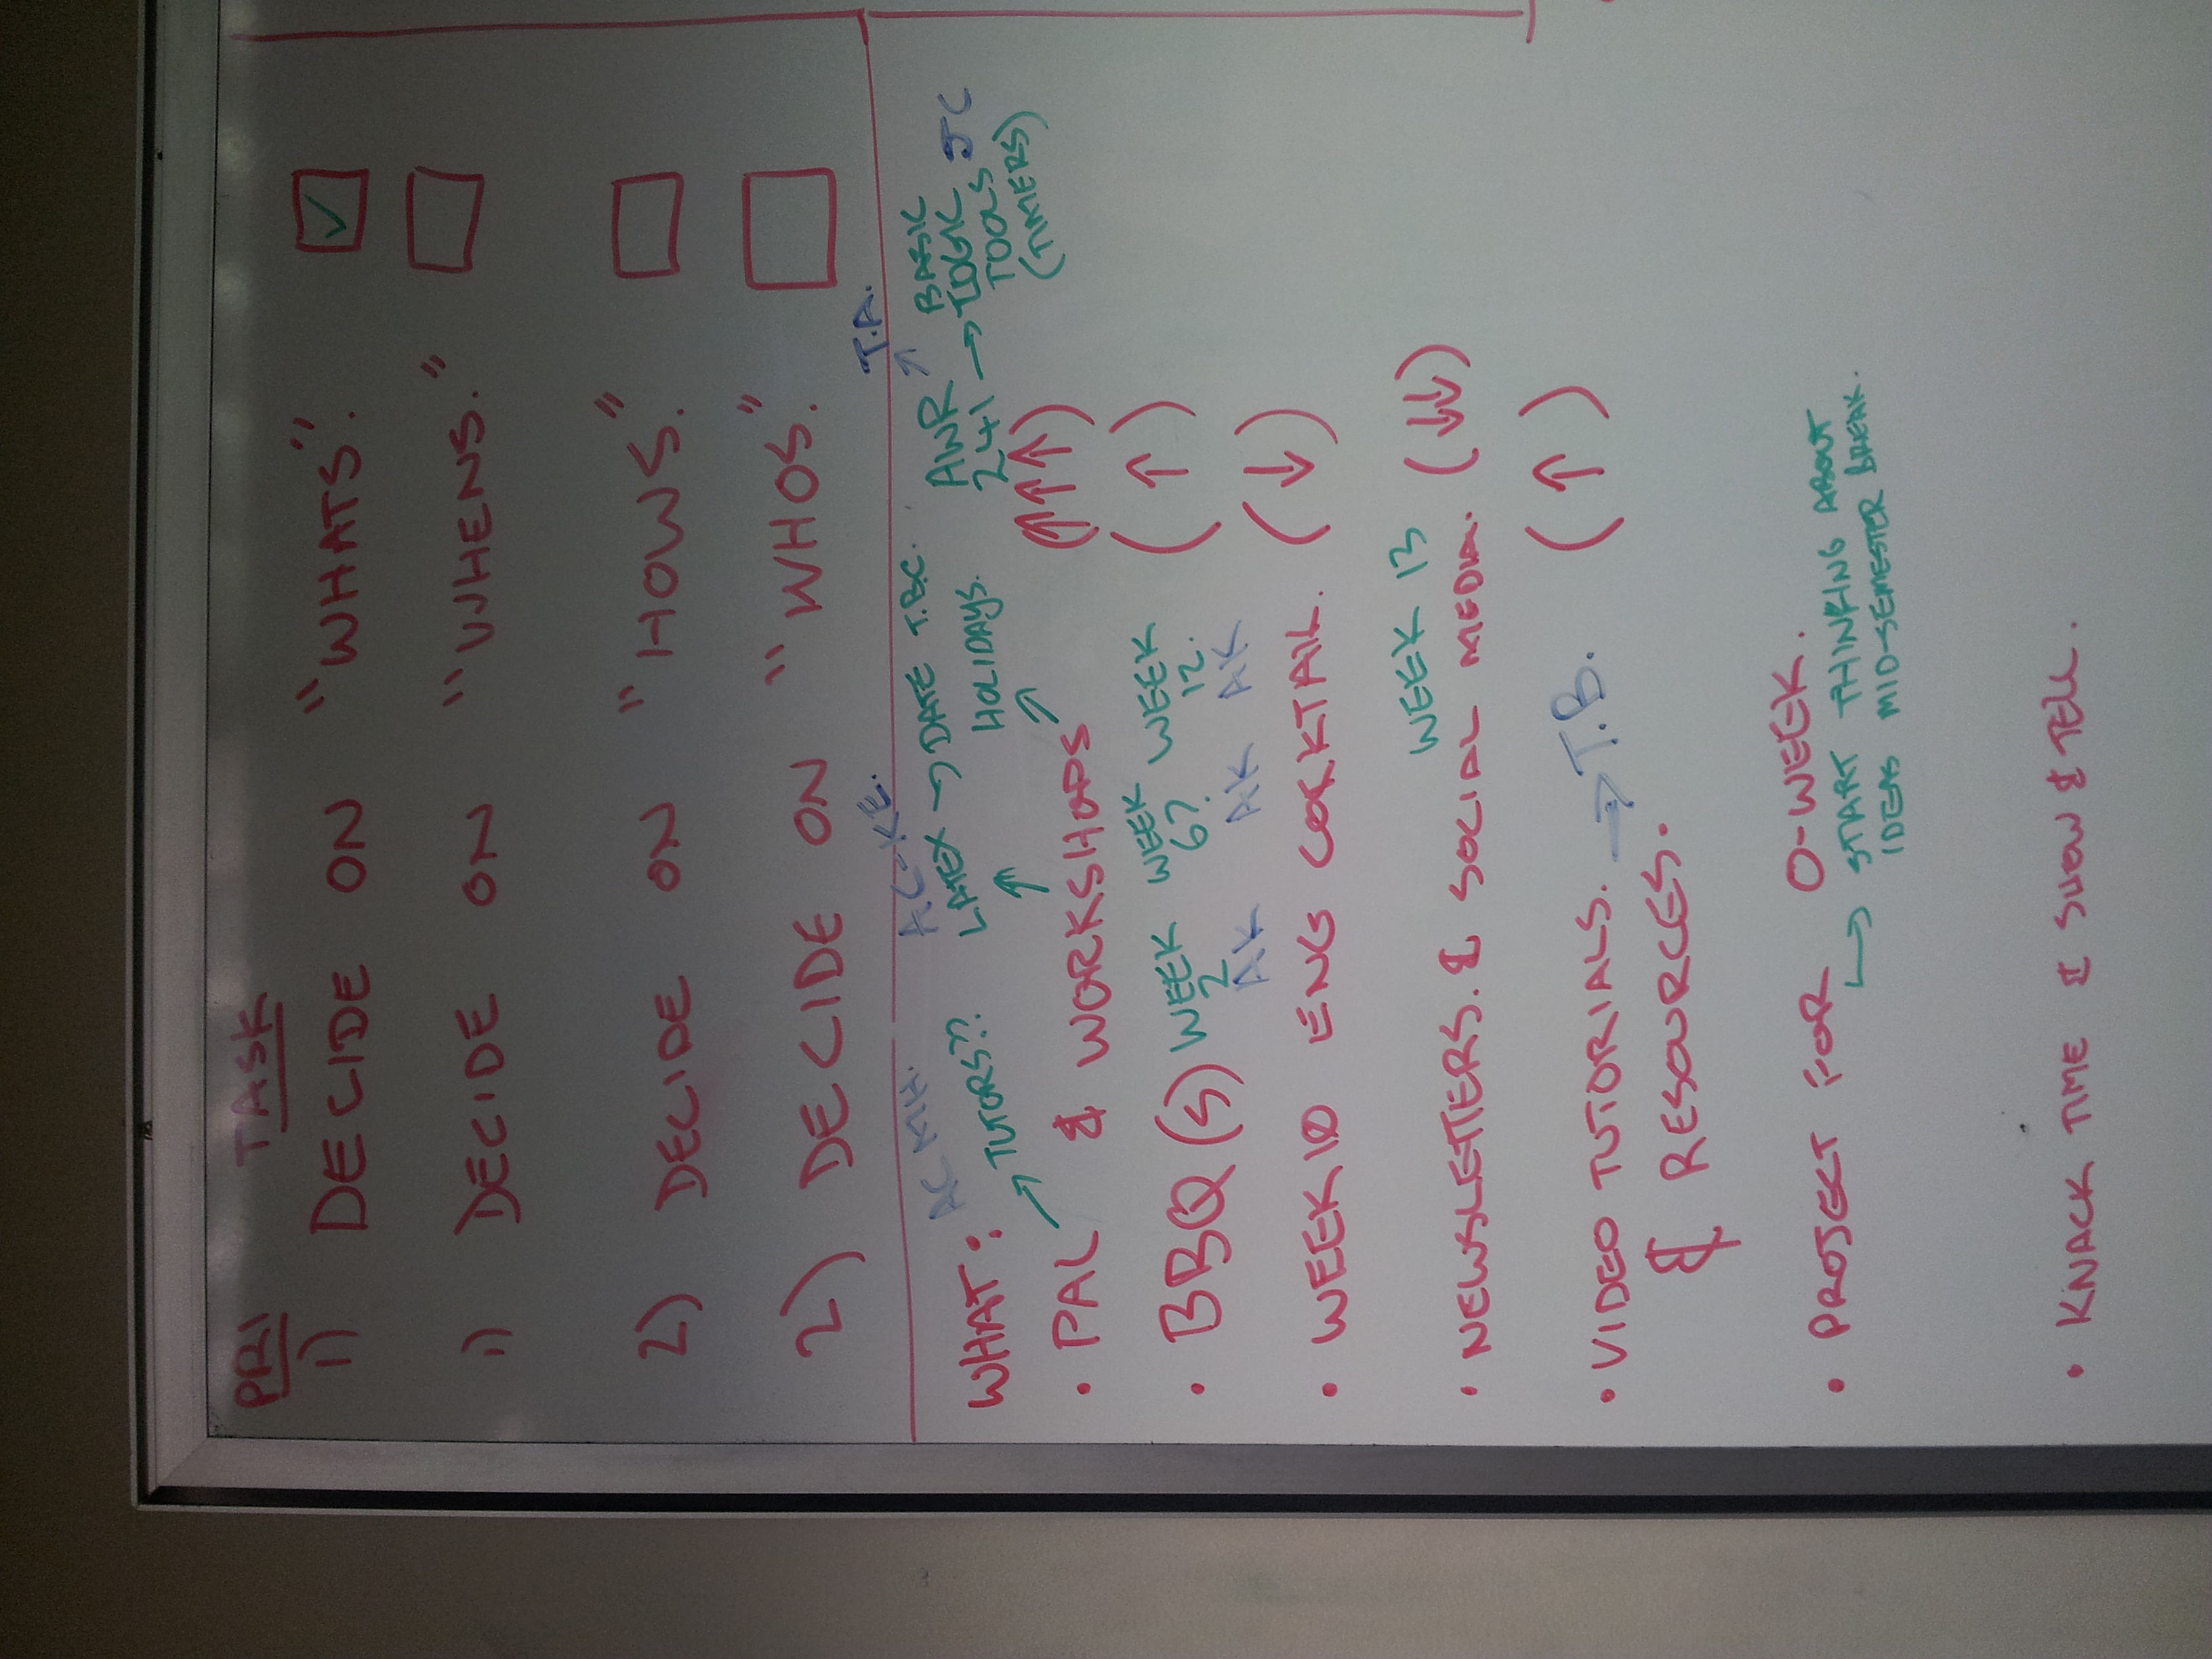 PRI TASK
1) DECIDE ON "WHATS".
1) DECIDE ON "WHENS."
2) DECIDE ON "HOWS."
2) DECIDE ON "WHOS."
T.A.
AC MH. A.C-K.E.
WHAT: TUTORS?? LATEX → DATE T.B.C. AWR
HOLIDAYS. 241 → BASIC
LOGIC JC
TOOLS
(TIMERS)
• PAL & WORKSHOPS (↑↑↑)
• BBQ(S) WEEK 2 WEEK 6? WEEK 12. (↑)
AK AK AK
• WEEK 10 ENG COCKTAIL. (↓)
WEEK 13
• NEWSLETTERS. & SOCIAL MEDIA. (↓↓)
• VIDEO TUTORIALS. → T.B. (↑)
& RESOURCES.
• PROJECT FOR O-WEEK.
↳ START THINKING ABOUT
IDEAS MID-SEMESTER BREAK.
• KNACK TIME & SHOW & TELL.